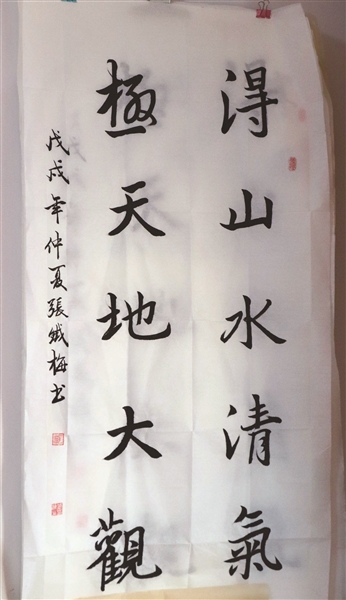 得山水清氣
極天地大觀
戊戌年仲夏張斌梅书